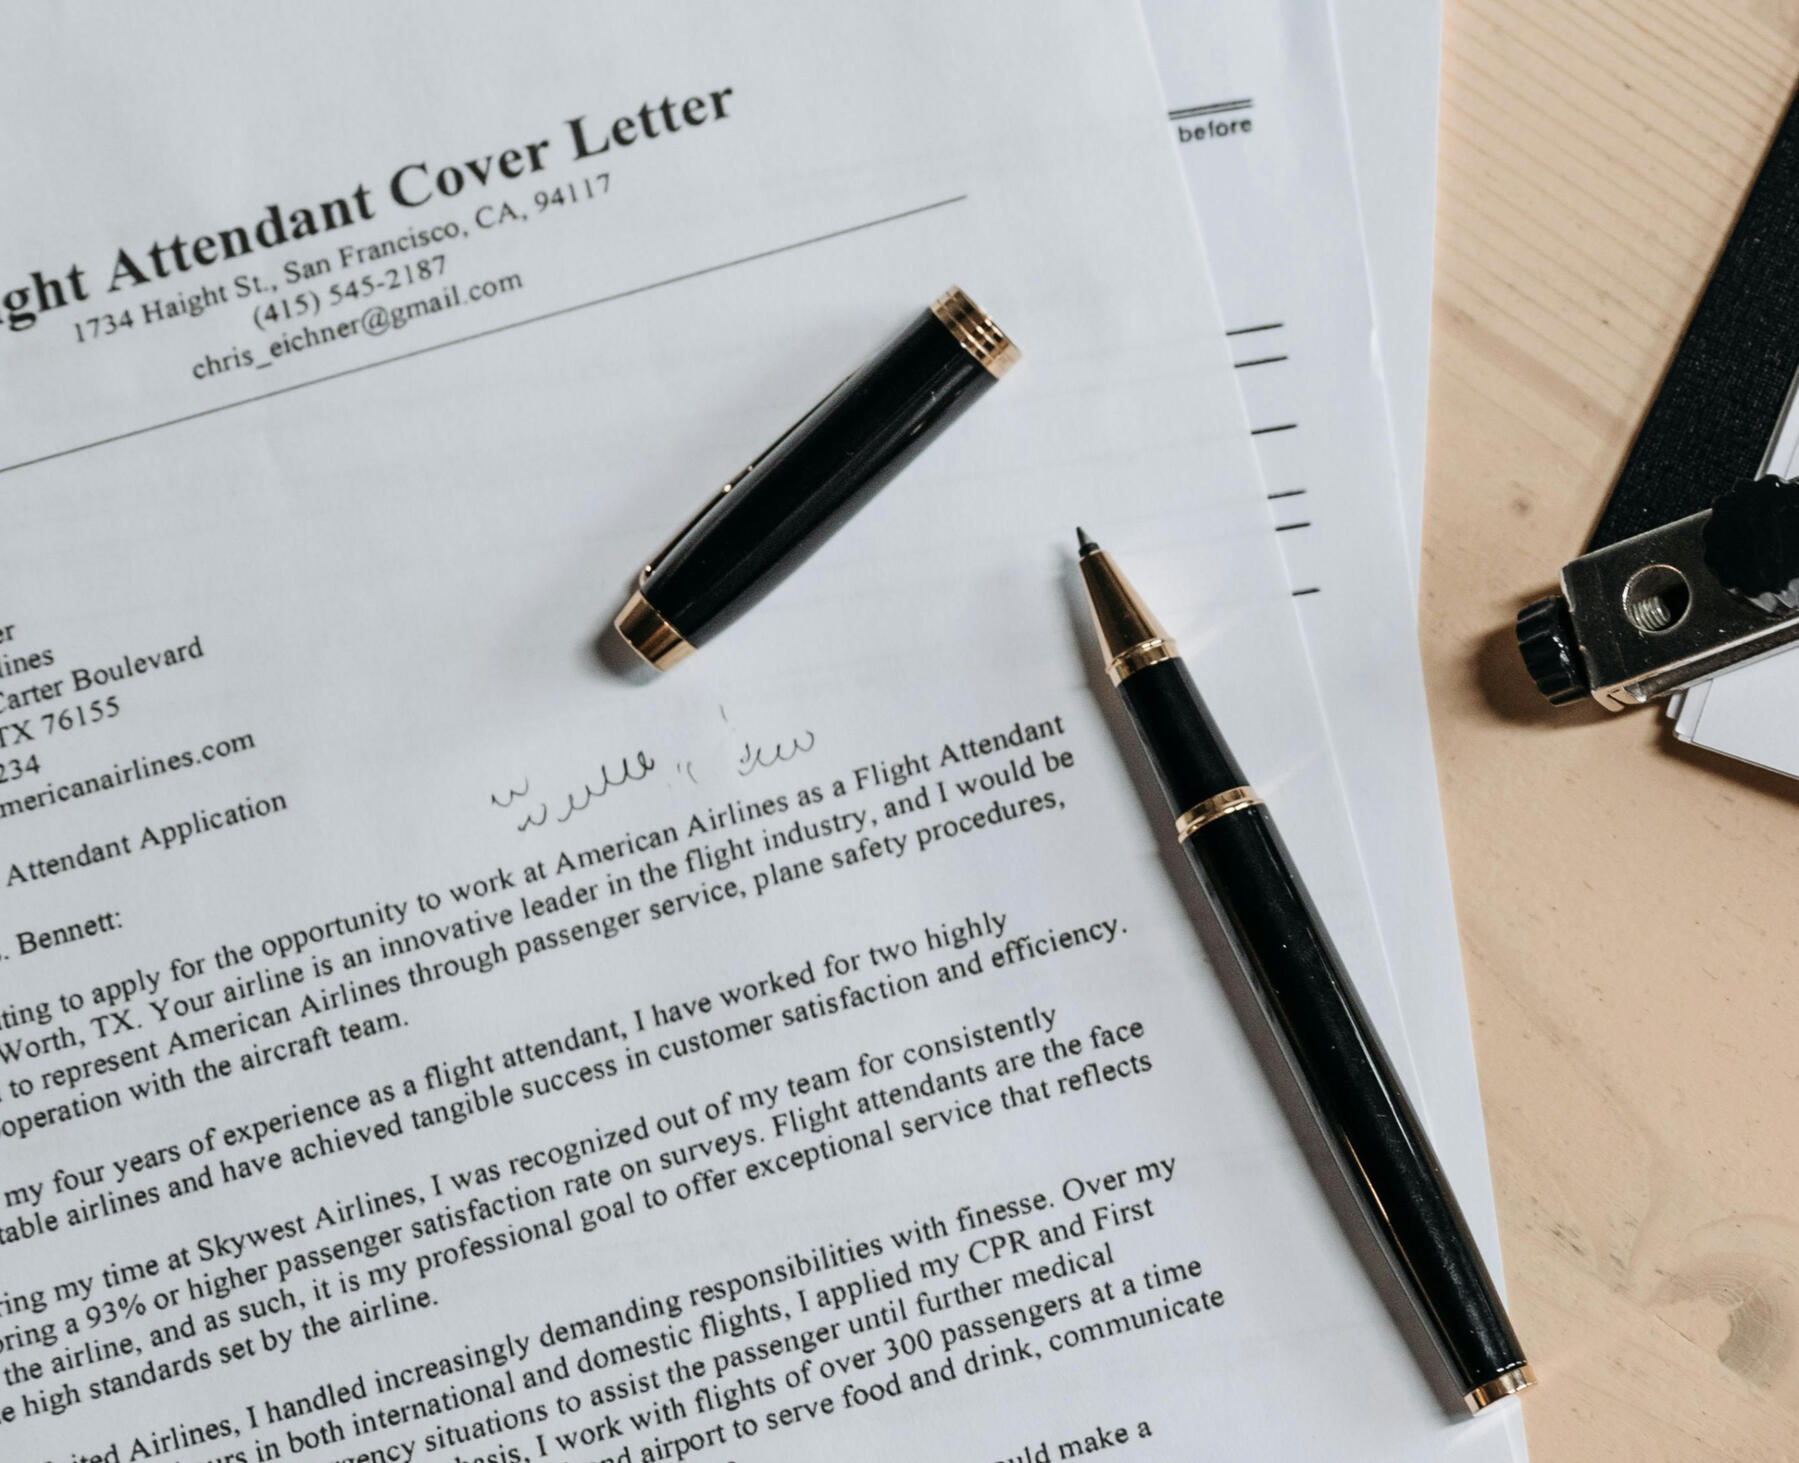 ght Attendant Cover Letter
1734 Haight St., San Francisco, CA, 94117
(415) 545-2187
chris_eichner@gmail.com
before
er
lines
Carter Boulevard
TX 76155
234
mericanairlines.com
Attendant Application
. Bennett:
ting to apply for the opportunity to work at American Airlines as a Flight Attendant
Worth, TX. Your airline is an innovative leader in the flight industry, and I would be
to represent American Airlines through passenger service, plane safety procedures,
operation with the aircraft team.
my four years of experience as a flight attendant, I have worked for two highly
table airlines and have achieved tangible success in customer satisfaction and efficiency.
ring my time at Skywest Airlines, I was recognized out of my team for consistently
oring a 93% or higher passenger satisfaction rate on surveys. Flight attendants are the face
the airline, and as such, it is my professional goal to offer exceptional service that reflects
e high standards set by the airline.
ited Airlines, I handled increasingly demanding responsibilities with finesse. Over my
ours in both international and domestic flights, I applied my CPR and First
rgency situations to assist the passenger until further medical
basis, I work with flights of over 300 passengers at a time
nd airport to serve food and drink, communicate
ould make a